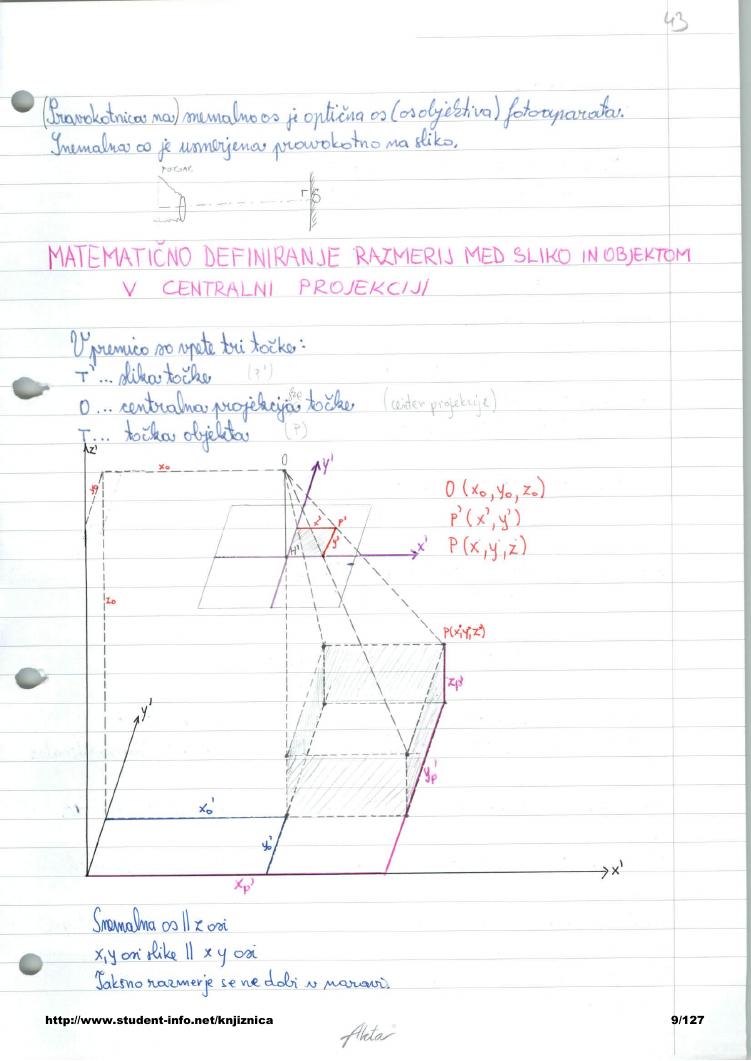 43
(Pravokotnica na) snemalno os je optična os (os objektiva) fotoaparata.
Snemalna os je usmerjena pravokotno na sliko.
FOTOAP.
MATEMATIČNO DEFINIRANJE RAZMERIJ MED SLIKO IN OBJEKTOM
V CENTRALNI PROJEKCIJI
V premico so vpete tri točke:
T' ... slika točke (P')
O ... centralna projekcija točke (center projekcije)
T ... točka objekta (P)
z'
x₀
y₀
O
y'
O (x₀, y₀, z₀)
P' (x', y')
P (x, y, z)
x'
P'
y'
H'
x'
z₀
P(x', y', z')
zp'
y'
yp'
x₀'
y₀'
xp'
x'
Snemalna os || z osi
x, y osi slike || x y osi
Takšno razmerje se ne dobi v naravi.
http://www.student-info.net/knjiznica
9/127
Akta